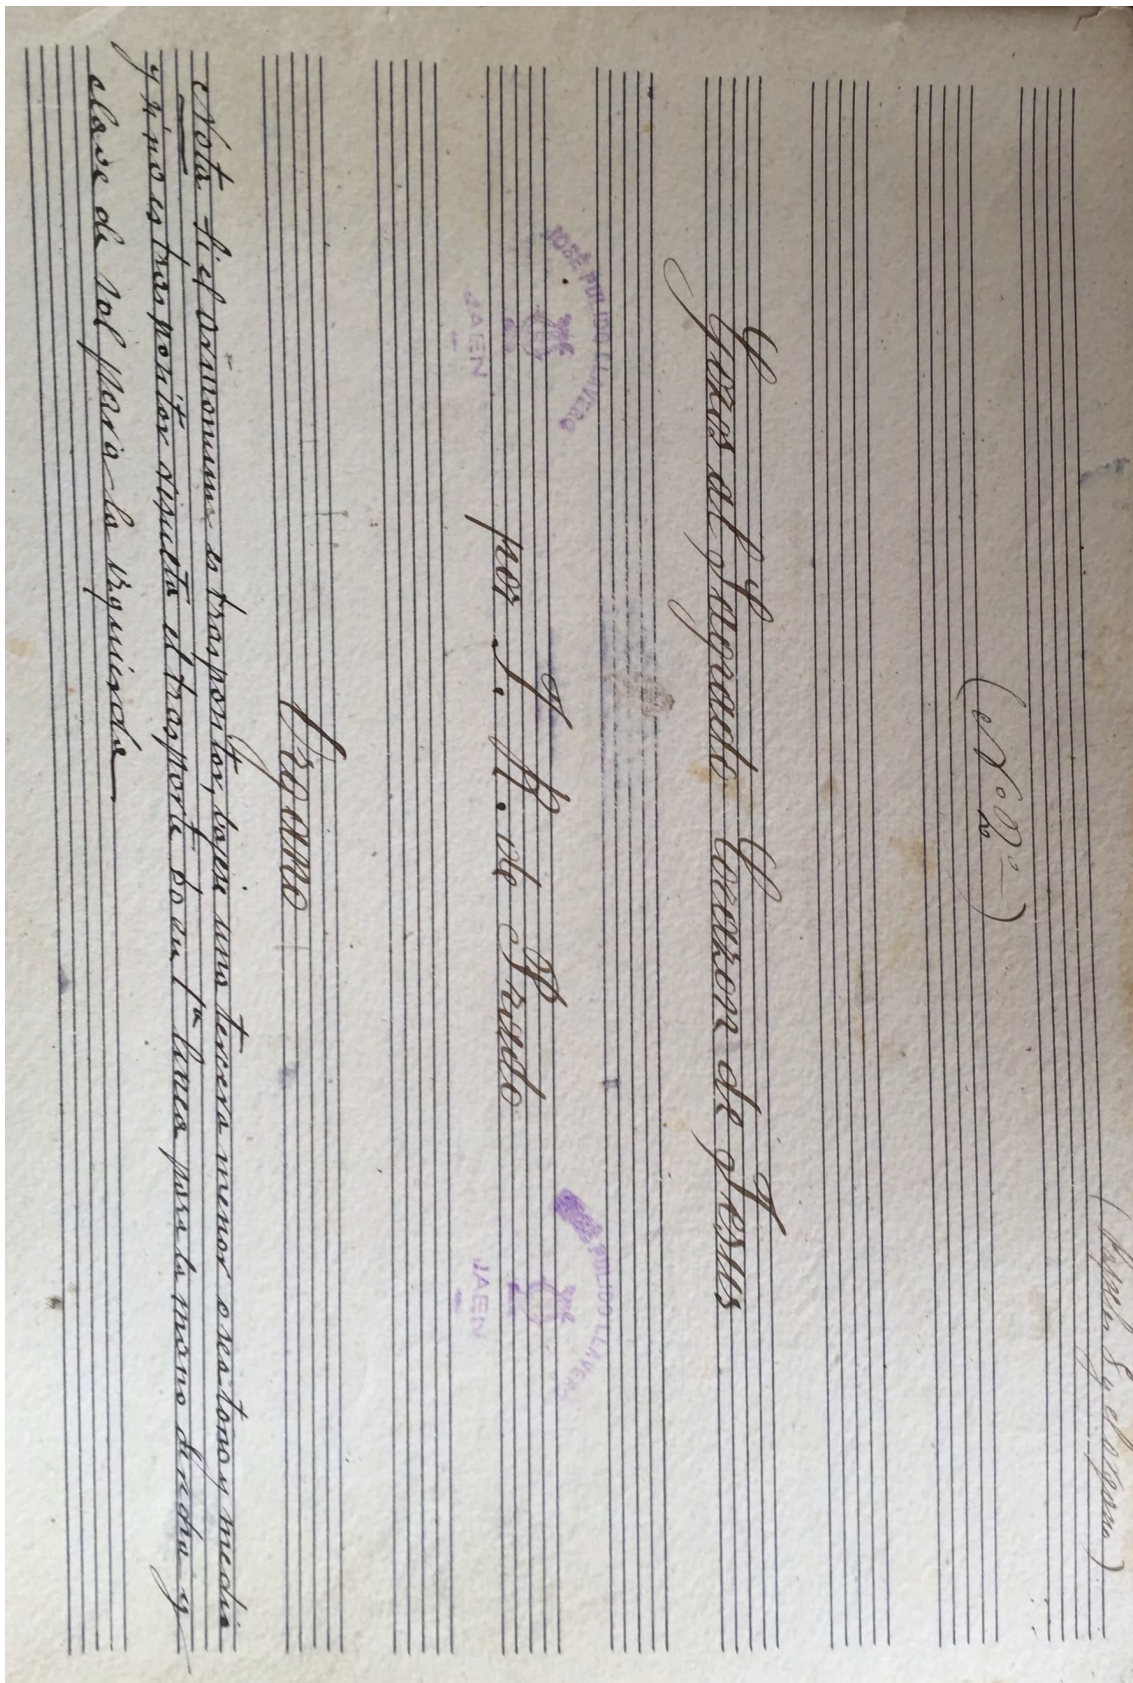 (Papeles 8 y el organo)
(Nº 2º)
Gozos al Sagrado Corazon de Jesus
JOSÉ PULIDO LLAVERO
JAEN
PULIDO LLAVERO
JAEN
por J. M. de Prado
Organo
Nota Si el Armonium es traspositor, bajese una tercera menor o sea tono y medio
y si no es traspositor resulta el trasporte Do en 1ª linea para la mano derecha y
clave de sol para la izquierda